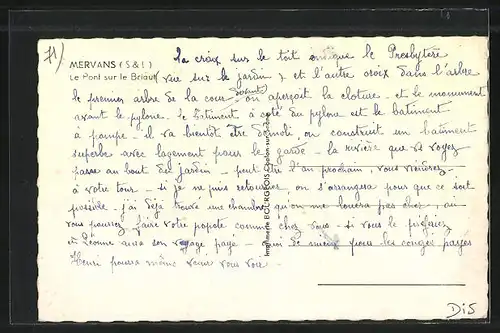 71)
MERVANS (S & L)
Le Pont sur le Briant
la croix sur le toit indique le Presbytère
(vue sur le jardin) et l'autre croix dans l'arbre
le premier arbre de la cour - on aperçoit la cloture - et le monument
devant
avant le pylone. Le batiment à coté du pylone est le batiment
à pompe - il va bientôt être démoli, on construit un batiment
superbe avec logement pour le garde - la rivière que vous voyez
passe au bout du jardin - peut être l'an prochain, vous viendrez
à votre tour - si je puis retourner, on s'arrangera pour que ce soit
possible - j'ai déjà trouvé une chambre qu'on me louera pas cher, ou
vous pourrez faire votre popote comme chez vous - si vous le préférez
Léonne aura son voyage payé - de mieux pour les congés payés
Henri pourra même venir vous voir -
Imprimerie BOURGEOIS, Chalon-sur-Saône
DiS